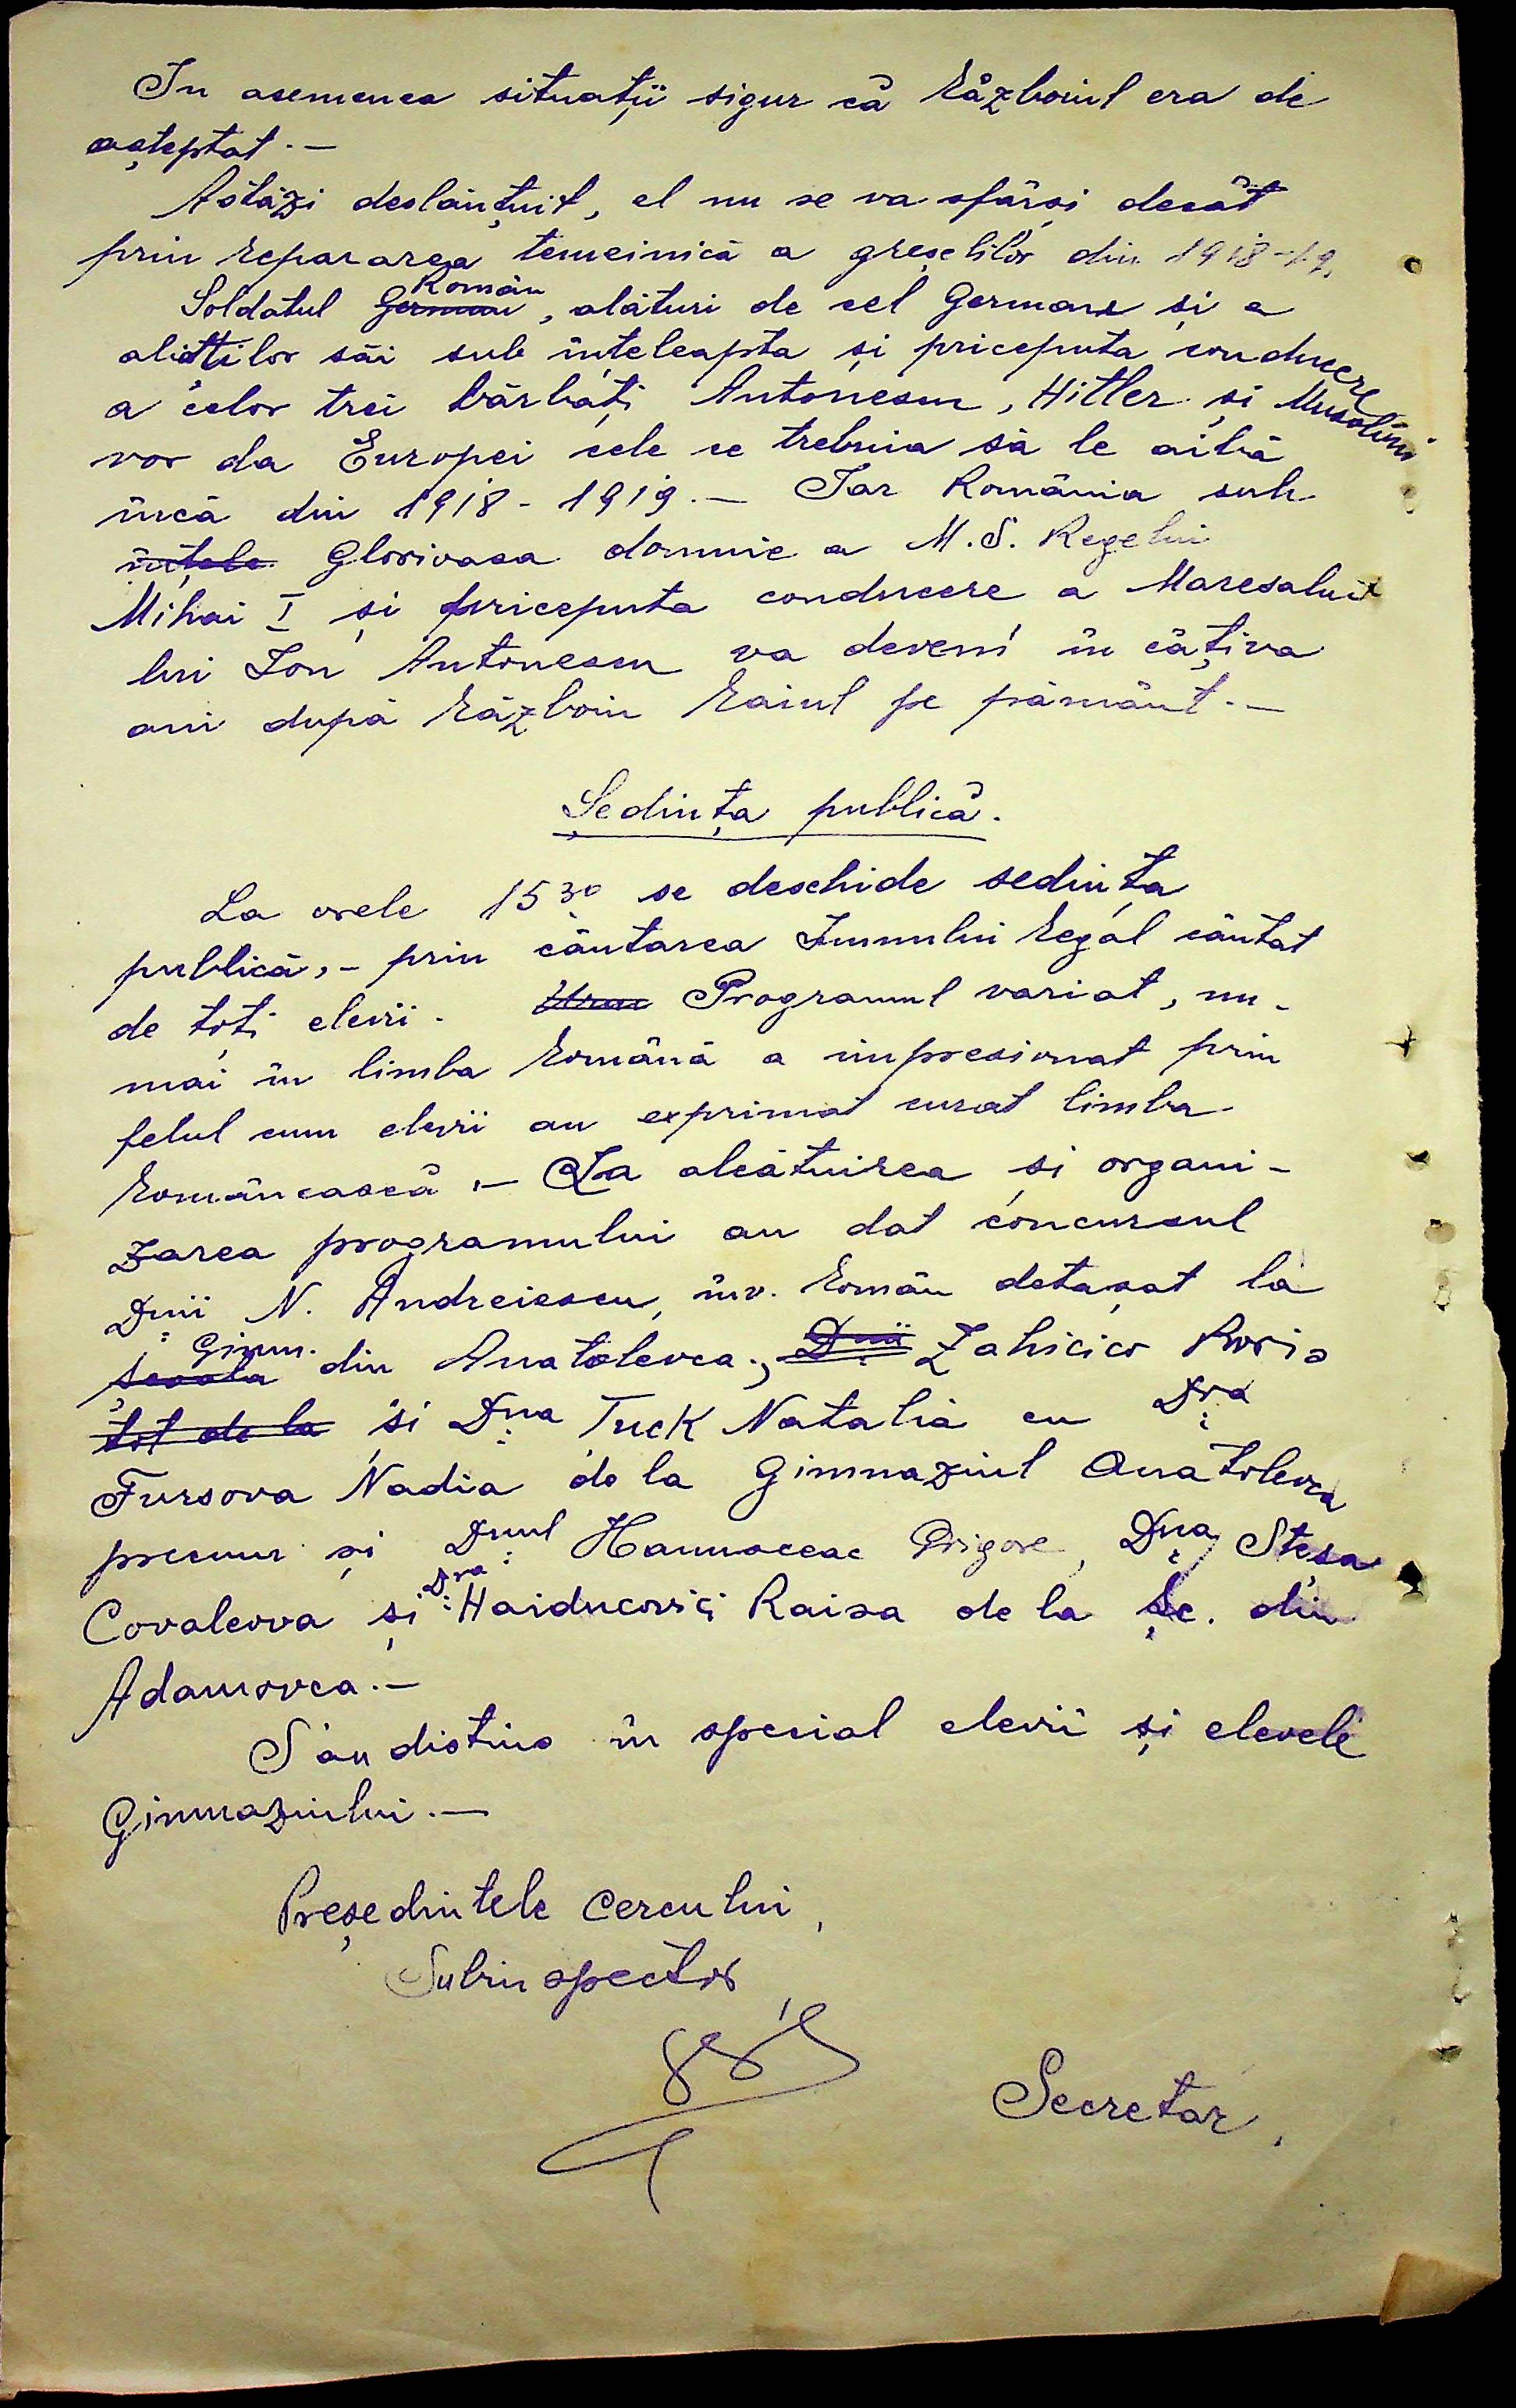 In asemenea situații sigur că Războiul era de
așteptat.—
Astăzi deslănțuit, el nu se va sfârși decât
prin repararea temeinică a greșelilor din 1918-19.
Soldatul ~~German~~ Român, alături de cel German și a
aliaților săi sub înțeleapta și priceputa conducere
a celor trei bărbați Antonescu, Hitler și Musolini
vor da Europei cele ce trebuia să le aibă
încă din 1918-1919.— Iar România sub
~~ințele~~ Glorioasa domnie a M.S. Regelui
Mihai I și priceputa conducere a Maresalui
lui Ion Antonescu va deveni în câțiva
ani după Războiu Raiul pe pământ.—
Ședința publică.
La orele 15³⁰ se deschide sedința
publică,- prin cântarea Imnului Regal cântat
de toți elevii. Programul variat, nu-
mai în limba Română a impresionat prin
felul cum elevii au exprimat curat limba
Românească.— La alcătuirea și organi-
zarea programului au dat concursul
Dnii N. Andreiescu, inv. Român detașat la
~~școala~~ Gimn. din Anatolevca., ~~Dnii~~ Zahicico Boris
~~tot de la~~ și Dna Tuck Natalia cu Dra
Fursova Nadia de la Gimnaziul Anatolevca
precum și Dnul Grigore, Dna Steșa
Covaleova și Dra Haiducovici Raisa de la Șc. din
Adamovca.—
S'au distins în special elevii și elevele
Gimnaziului.—
Președintele Cercului,
Subinspector
Secretar,